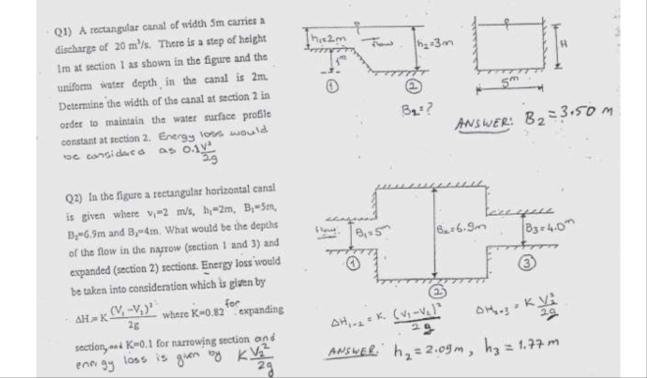 Q1) A rectangular canal of width 5m carries a
discharge of 20 m³/s. There is a step of height
1m at section 1 as shown in the figure and the
uniform water depth in the canal is 2m.
Determine the width of the canal at section 2 in
order to maintain the water surface profile
constant at section 2. Energy loss would
be considared as 0.1V²/2g
h₁=2m
flow
h₂=3m
1m
H
①
②
5m
B₂=?
ANSWER: B₂=3.50 m
Q2) In the figure a rectangular horizontal canal
is given where v₁=2 m/s, h₁=2m, B₁=5m,
B₂=6.9m and B₃=4m. What would be the depths
of the flow in the narrow (section 1 and 3) and
expanded (section 2) sections. Energy loss would
be taken into consideration which is given by
ΔH=K (V₁-V₂)²/2g where K=0.82 for expanding
section, and K=0.1 for narrowing section and
energy loss is given by K V₂²/2g
flow
B₁=5m
B₂=6.9m
B₃=4.0m
①
②
③
ΔH₁₋₂ = K. (V₁-V₂)²/2g
ΔH₂₋₃ = K V₃²/2g
ANSWER: h₂=2.09m, h₃=1.77m